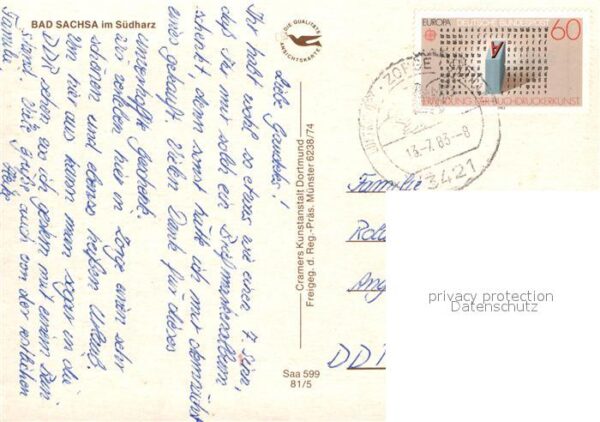 BAD SACHSA im Südharz
DIE QUALITÄTS
ANSICHTSKARTE
Liebe
Ihr habt wohl so etwas wie einen 7. Sinn,
daß Ihr mir solch ein Briefmarkenalbum
schenkt, denn sonst hätte ich mir demnächst
eines gekauft. Vielen Dank für dieses
unverhoffte Geschenk.
Wir verleben hier in Zorge einen sehr
schönen und ebenso heißen Urlaub.
Von hier aus kann man sogar in die
DDR sehen, was ich gestern mit einem
Viele Grüße auch von der restlichen
Familie,
Cramers Kunstanstalt Dortmund
Freigeg. d. Reg.-Präs. Münster 6238/74
Saa 599
81/5
EUROPA DEUTSCHE BUNDESPOST 60
ERFINDUNG DER BUCHDRUCKERKUNST
ZORGE
13.-7.83.-8
3421
Familie
DDR
privacy protection
Datenschutz